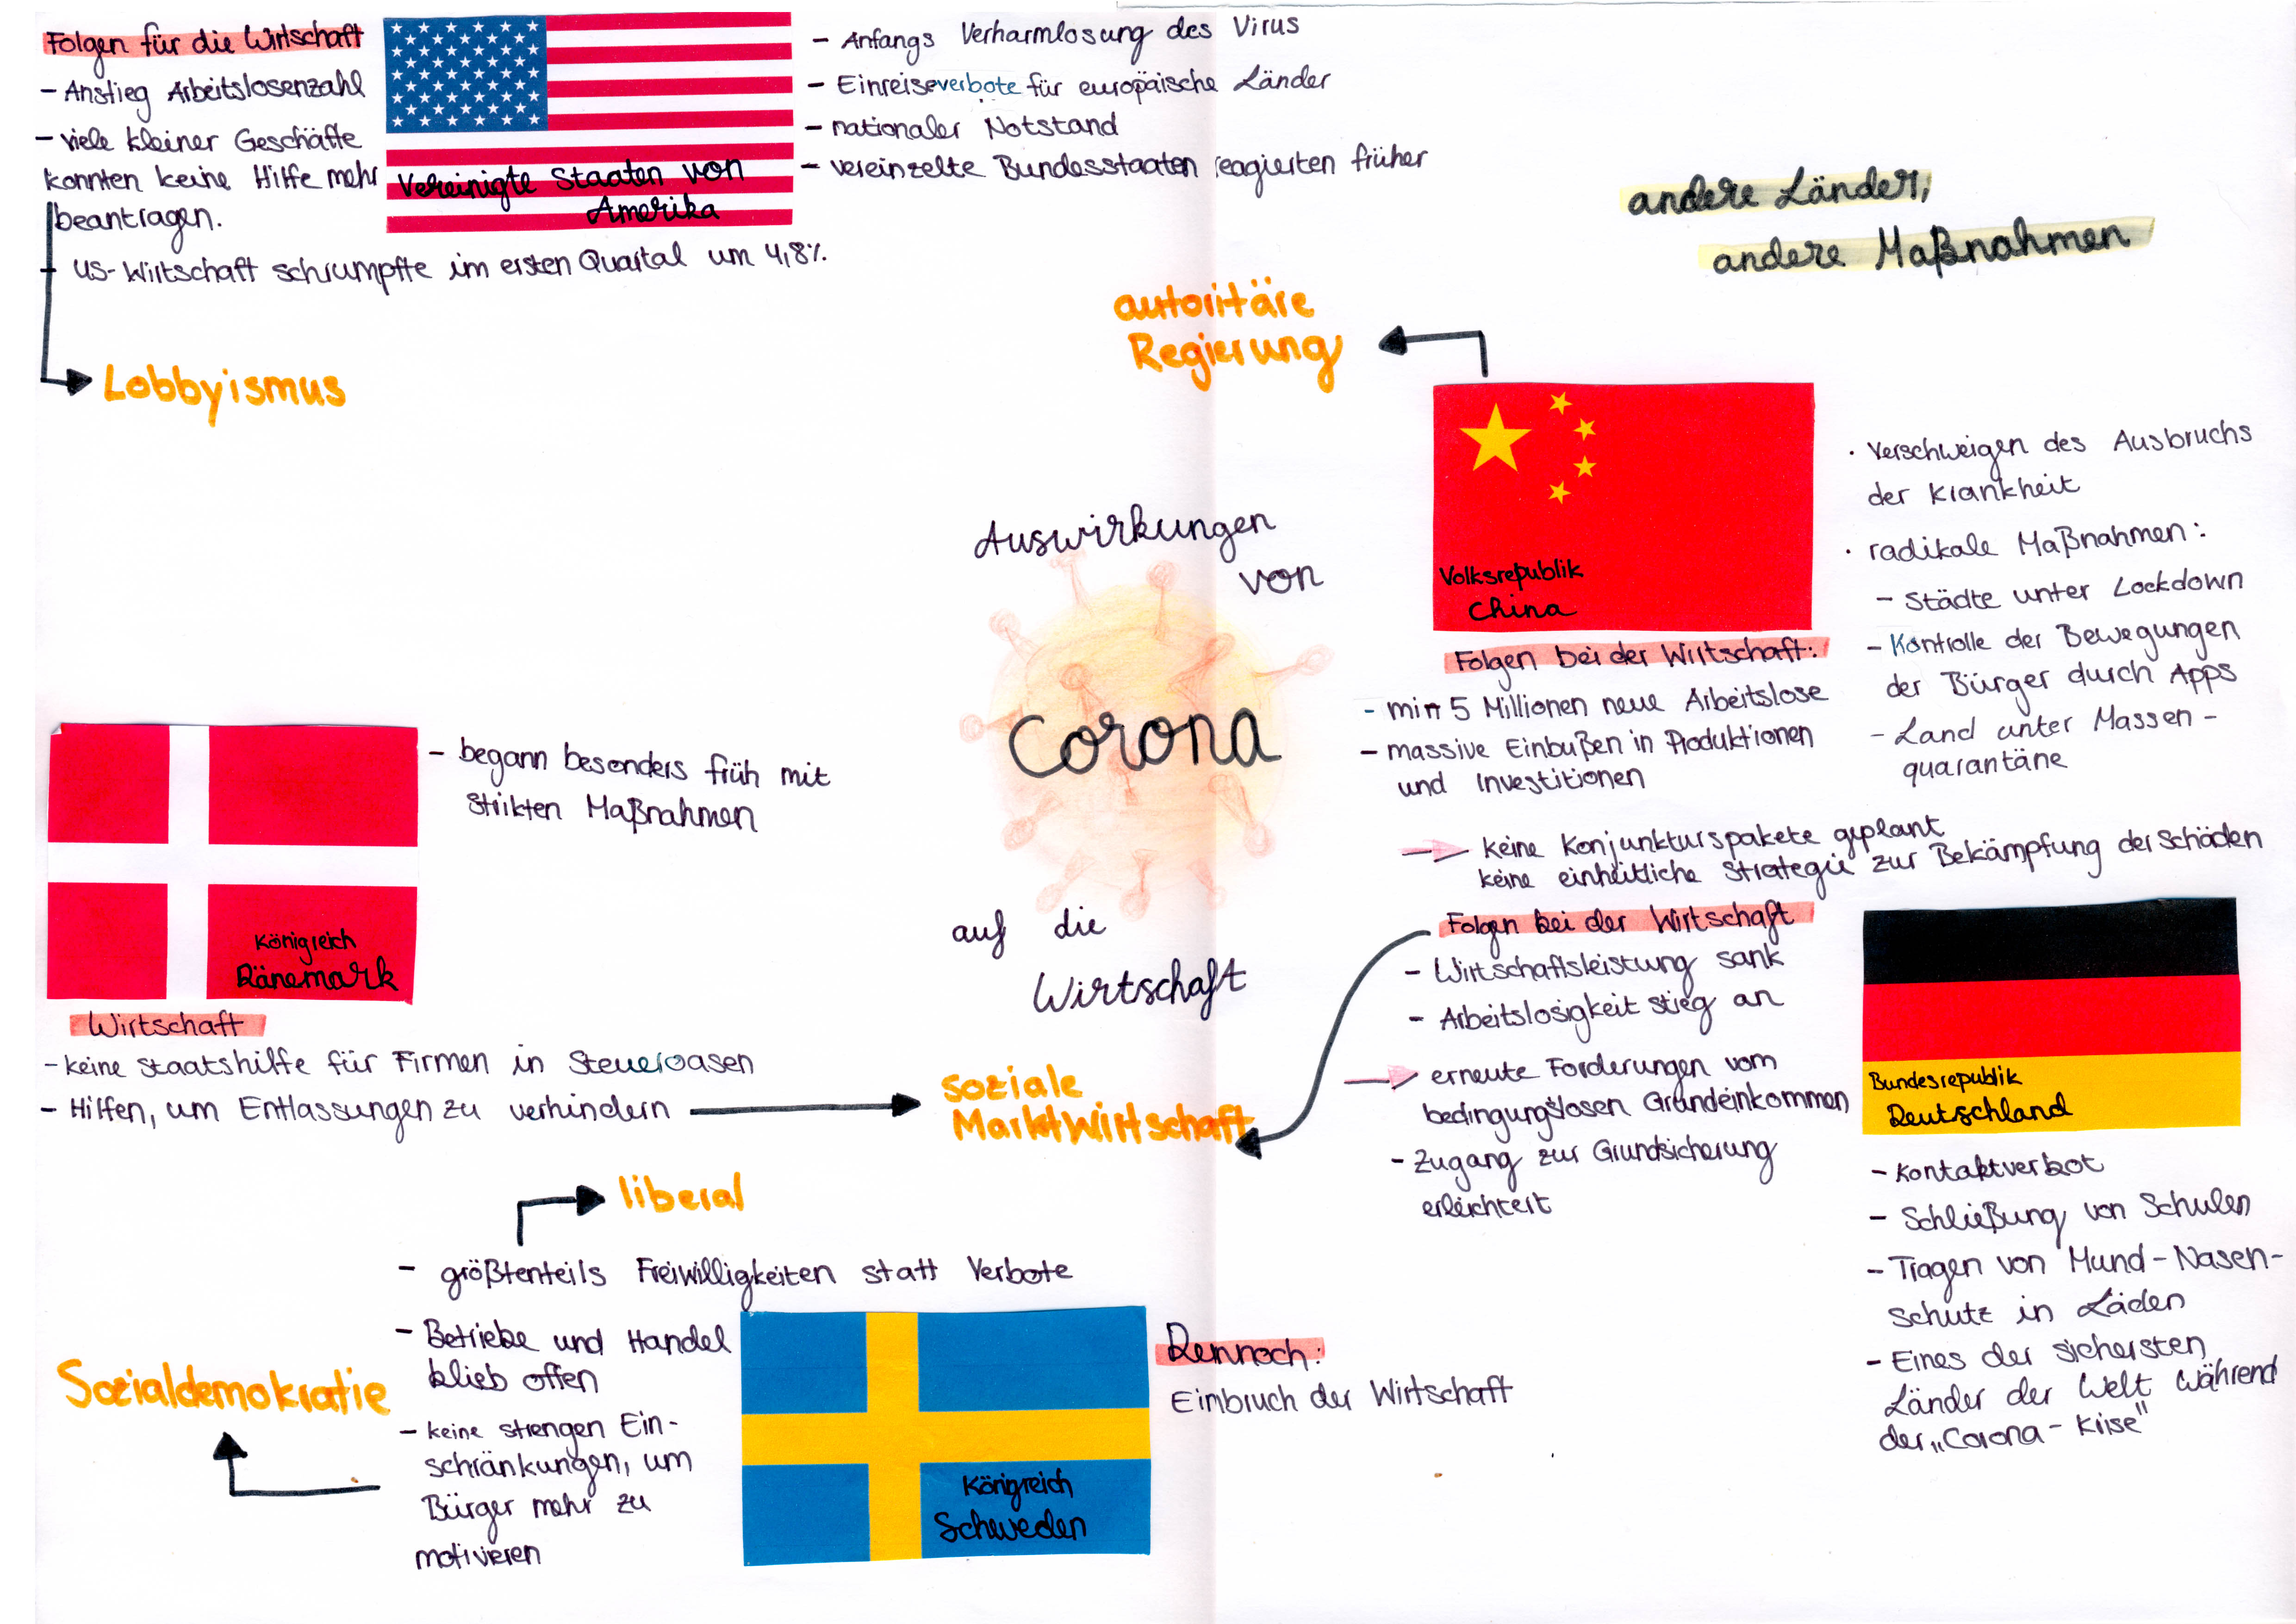 Folgen für die Wirtschaft
- Anstieg Arbeitslosenzahl
- viele kleiner Geschäfte
konnten keine Hilfe mehr
beantragen.
- US-Wirtschaft schrumpfte im ersten Quartal um 4,8%
Lobbyismus
Vereinigte Staaten von
Amerika
- Anfangs Verharmlosung des Virus
- Einreiseverbote für europäische Länder
- nationaler Notstand
- vereinzelte Bundesstaaten reagierten früher
andere Länder,
andere Maßnahmen
autoritäre
Regierung
Volksrepublik
China
· Verschweigen des Ausbruchs
der Krankheit
· radikale Maßnahmen:
- Städte unter Lockdown
- Kontrolle der Bewegungen
der Bürger durch Apps
- Land unter Massen-
quarantäne
Folgen bei der Wirtschaft:
- min 5 Millionen neue Arbeitslose
- massive Einbußen in Produktionen
und Investitionen
keine Konjunkturspakete geplant
keine einheitliche Strategie zur Bekämpfung der Schäden
Auswirkungen
von
Corona
auf die
Wirtschaft
Königreich
Dänemark
- begann besonders früh mit
strikten Maßnahmen
Wirtschaft
- keine Staatshilfe für Firmen in Steueroasen
- Hilfen, um Entlassungen zu verhindern
soziale
Marktwirtschaft
Folgen bei der Wirtschaft
- Wirtschaftsleistung sank
- Arbeitslosigkeit stieg an
erneute Forderungen vom
bedingungslosen Grundeinkommen
- Zugang zur Grundsicherung
erleichtert
Bundesrepublik
Deutschland
- Kontaktverbot
- Schließung von Schulen
- Tragen von Mund-Nasen-
schutz in Läden
- Eines der sichersten
Länder der Welt während
der „Corona-Krise"
liberal
- größtenteils Freiwilligkeiten statt Verbote
- Betriebe und Handel
blieb offen
- keine strengen Ein-
schränkungen, um
Bürger mehr zu
motivieren
Sozialdemokratie
Königreich
Schweden
Dennoch:
Einbruch der Wirtschaft